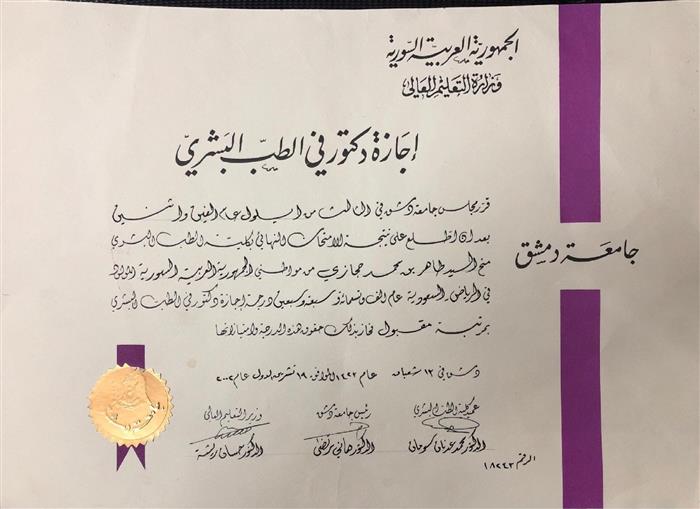 الجمهورية العربية السورية
وزارة التعليم العالي
إجازة دكتور في الطب البشري
جامعة دمشق
قرر مجلس جامعة دمشق في الثالث من ايلول عام الفين واثنين
بعد ان اطلع على نتيجة الامتحان النهائي بكلية الطب البشري
منح السيد طاهر بن محمد حجازي من مواطني الجمهورية العربية السورية المولود
في الرياض السعودية عام الف وتسعمائة وسبعة وسبعين درجة إجازة دكتور في الطب البشري
بمرتبة مقبول فحاز بذلك حقوق هذه الدرجة وامتيازاتها
دمشق في ١٣ شعبان عام ١٤٢٣ الموافق ١٩ تشرين الاول عام ٢٠٠٢
عميد كلية الطب البشري رئيس جامعة دمشق وزير التعليم العالي
الدكتور محمد عدنان سومان الدكتور هاني مرتضى الدكتور حسان ريشة
الرقم ١٨٢٤٣